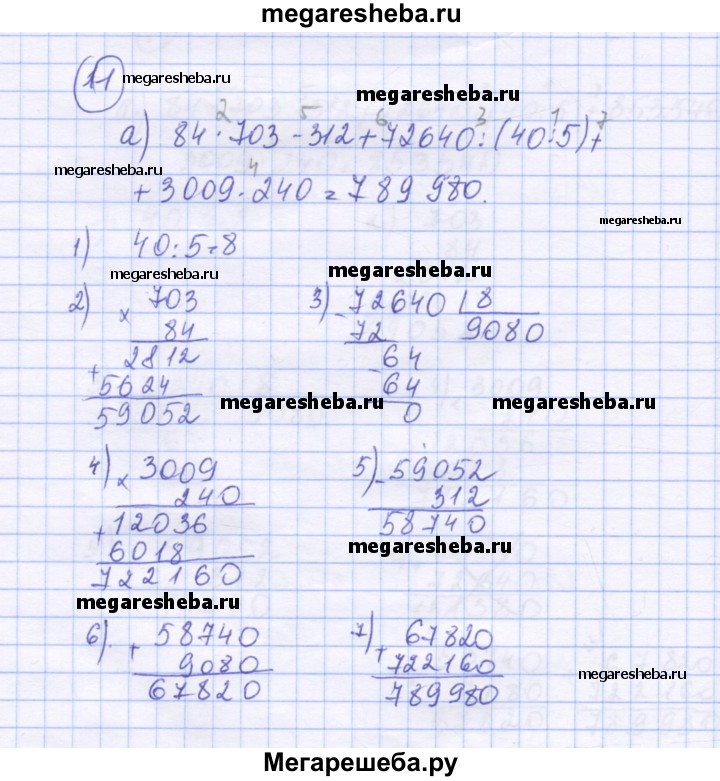 megaresheba.ru
11 megaresheba.ru
megaresheba.ru
2 5 6 3 1 7
а) 84·703-312+72640:(40:5)+
megaresheba.ru
4
+3009·240=789980.
megaresheba.ru
1) 40:5=8
megaresheba.ru megaresheba.ru
2) 703 3) 72640 8
× 84 - 72 9080
2812 - 64
+ 5624 64
59052 0
megaresheba.ru megaresheba.ru
4) × 3009 5) - 59052
240 312
+ 12036 58740
6018 megaresheba.ru
722160
megaresheba.ru
6). 58740 7) 67820
+ 9080 + 722160
67820 789980
megaresheba.ru
Мегарешеба.ру